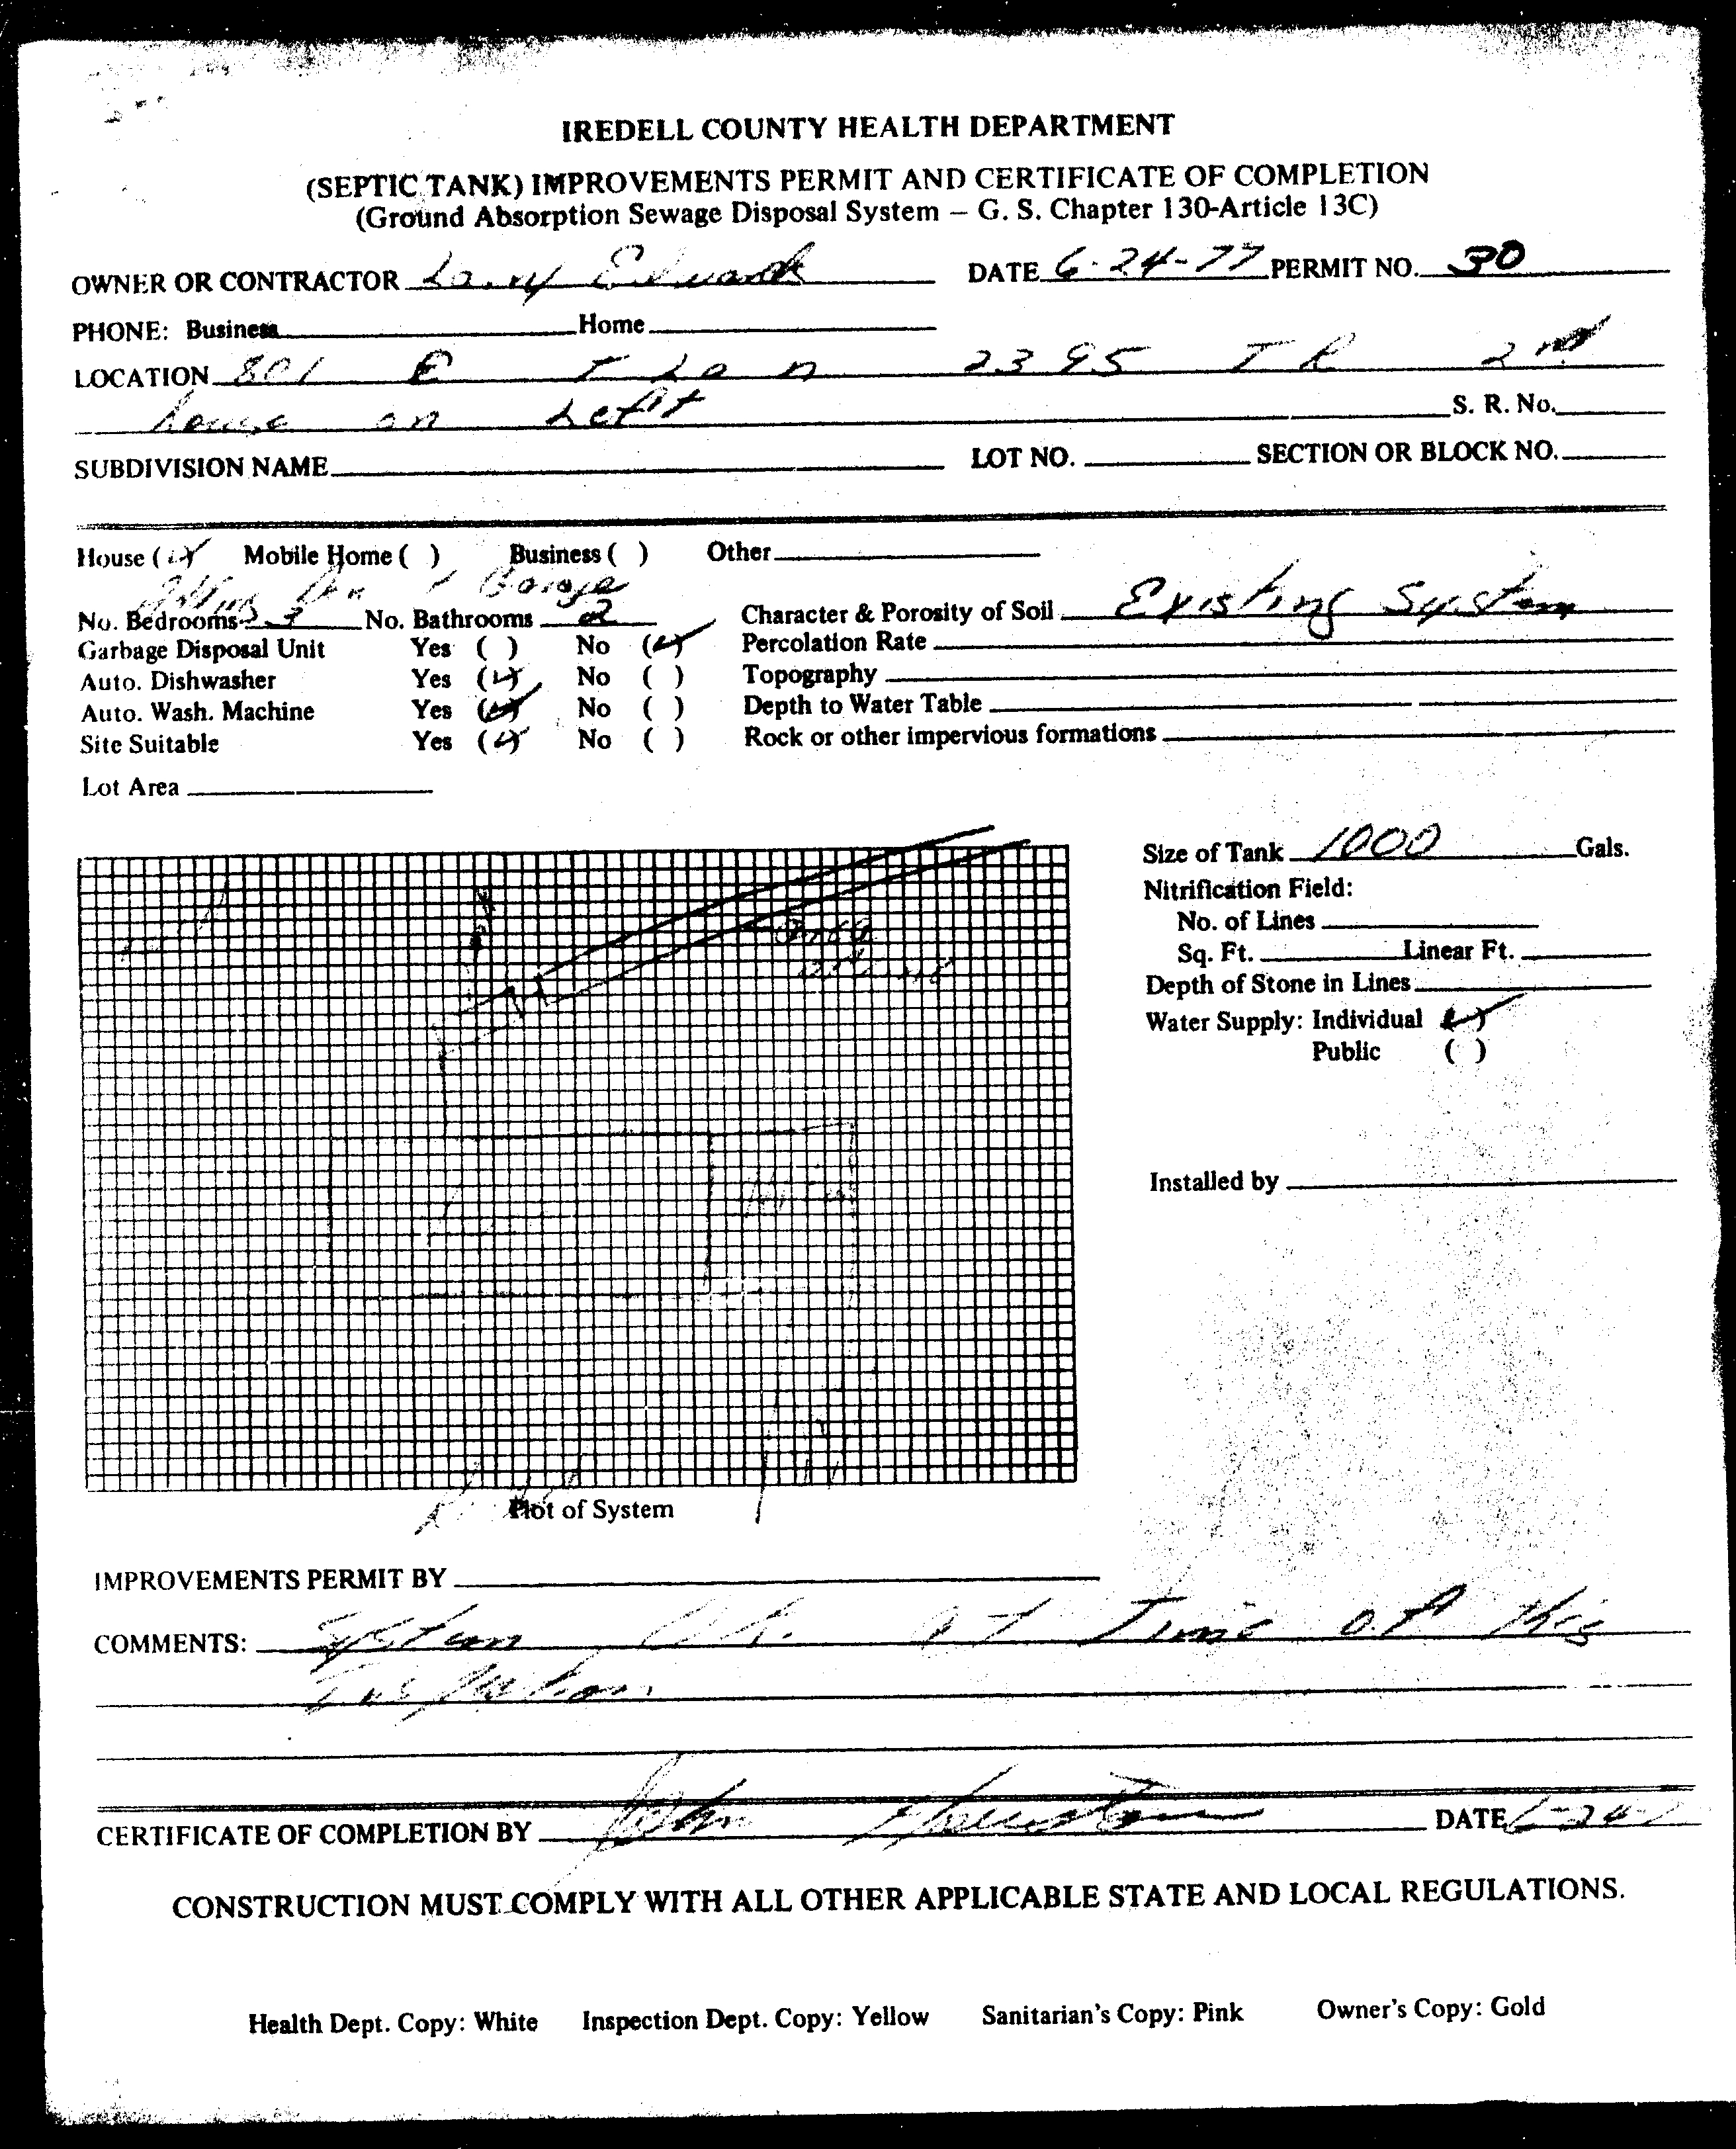 IREDELL COUNTY HEALTH DEPARTMENT
(SEPTIC TANK) IMPROVEMENTS PERMIT AND CERTIFICATE OF COMPLETION
(Ground Absorption Sewage Disposal System – G. S. Chapter 130-Article 13C)
OWNER OR CONTRACTOR Larry Edwards DATE 6-24-77 PERMIT NO. 30
PHONE: Business Home
LOCATION 801 E T L on 2395 T R 2nd
house on Left S. R. No.
SUBDIVISION NAME LOT NO. SECTION OR BLOCK NO.
House (✓) Mobile Home ( ) Business ( ) Other
Garage
No. Bedrooms 3 No. Bathrooms 2 Character & Porosity of Soil Existing System
Garbage Disposal Unit Yes ( ) No (✓) Percolation Rate
Auto. Dishwasher Yes (✓) No ( ) Topography
Auto. Wash. Machine Yes (✓) No ( ) Depth to Water Table
Site Suitable Yes (✓) No ( ) Rock or other impervious formations
Lot Area
Size of Tank 1000 Gals.
Nitrification Field:
No. of Lines
Sq. Ft. Linear Ft.
Depth of Stone in Lines
Water Supply: Individual (✓)
Public ( )
Installed by
Plot of System
IMPROVEMENTS PERMIT BY
COMMENTS: System O.K. at Time of this
Inspection.
CERTIFICATE OF COMPLETION BY John Houston DATE 6-24-
CONSTRUCTION MUST COMPLY WITH ALL OTHER APPLICABLE STATE AND LOCAL REGULATIONS.
Health Dept. Copy: White Inspection Dept. Copy: Yellow Sanitarian's Copy: Pink Owner's Copy: Gold